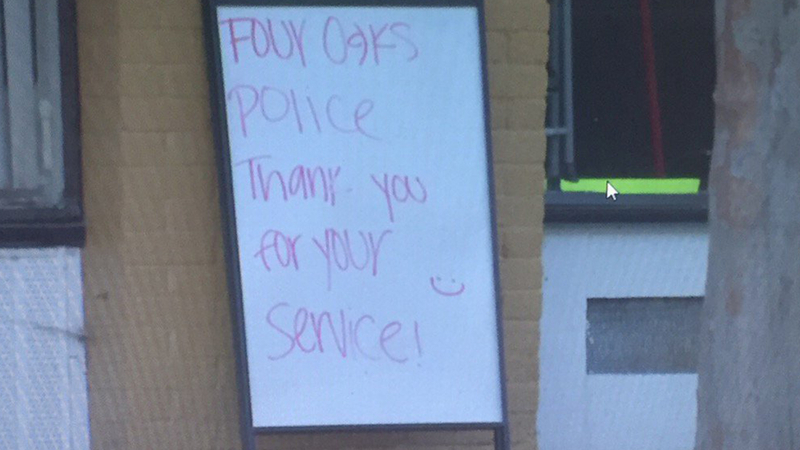 Four Oaks
Police
Thank you
for your
Service!